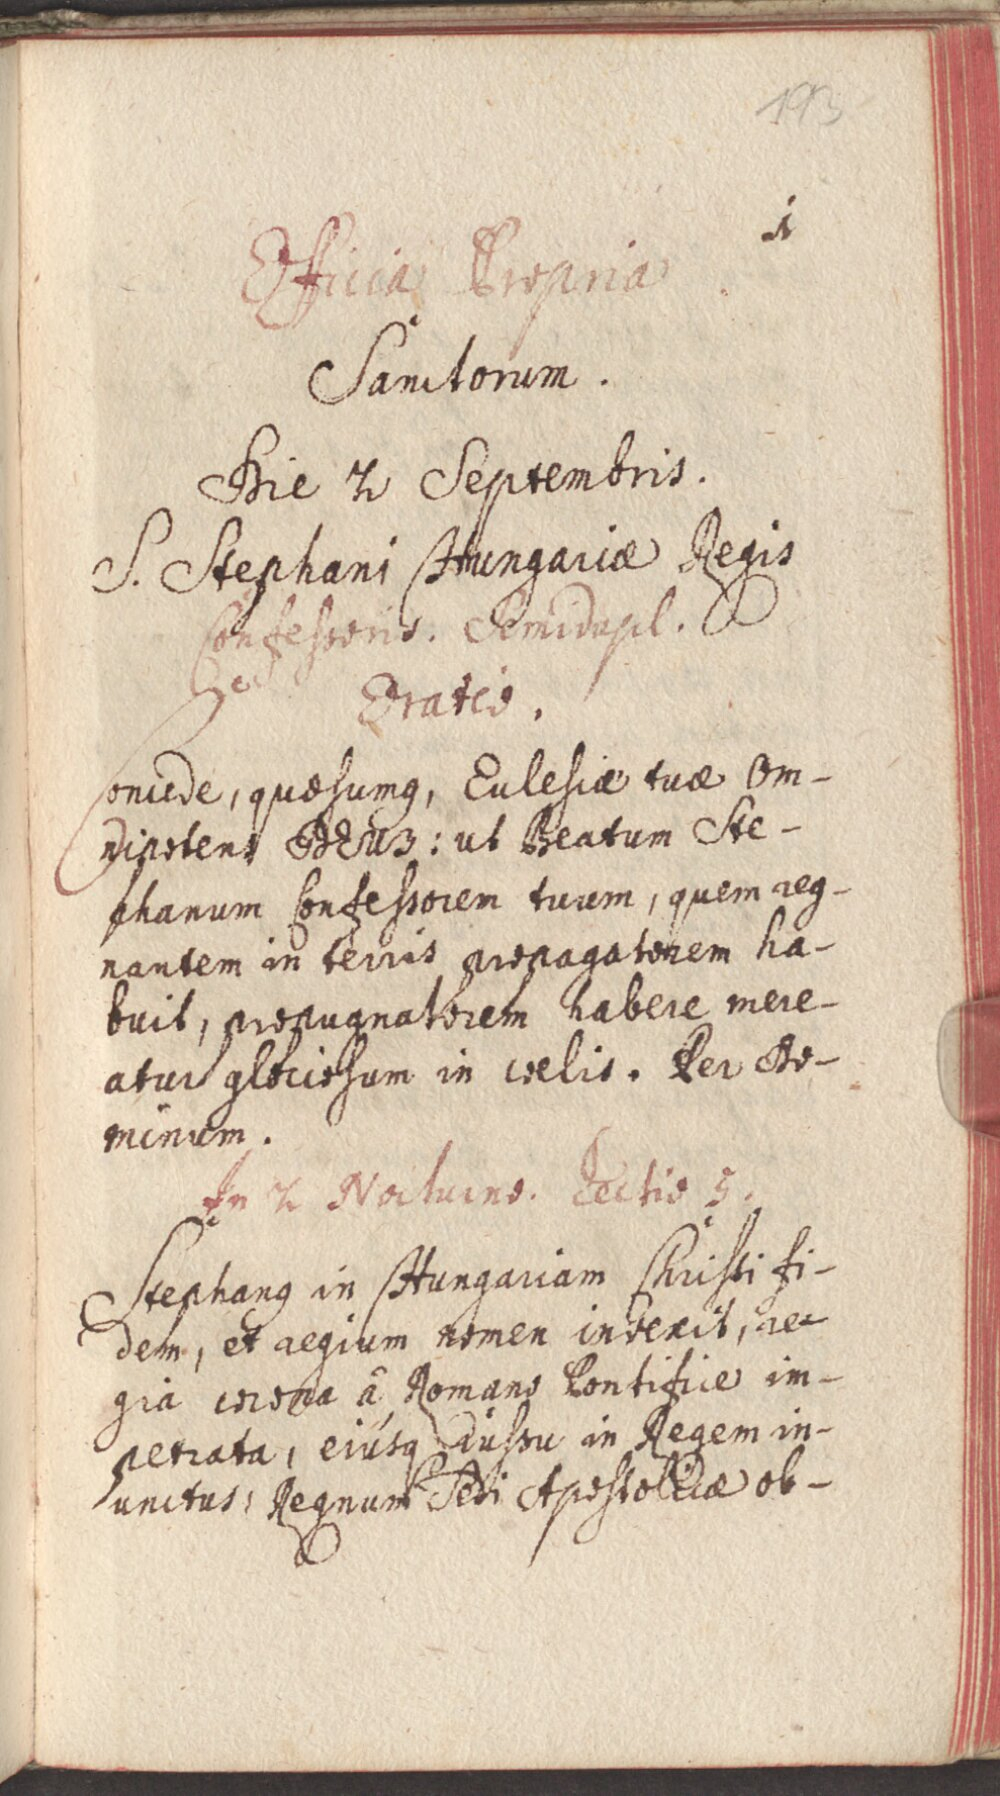 193
1
Officia Propria
Sanctorum.
Die 2 Septembris.
S. Stephani Hungariæ Regis
Confessoris. Semidupl.
Oratio.
Concede, quæsumq, Ecclesiæ tuæ Om-
nipotens DEUS: ut Beatum Ste-
phanum Confessorem tuum, quem reg-
nantem in terris propagatorem ha-
buit, propugnatorem habere mere-
atur gloriosum in coelis. Per Do-
minum.
In 2 Nocturno. Lectio 5.
Stephanq in Hungariam Christi fi-
dem, et regium nomen invexit, re-
gia corona â Romano Pontifice im-
petrata, eiúsq jussu in Regem in-
unctus, Regnum Sedi Apostolicæ ob-